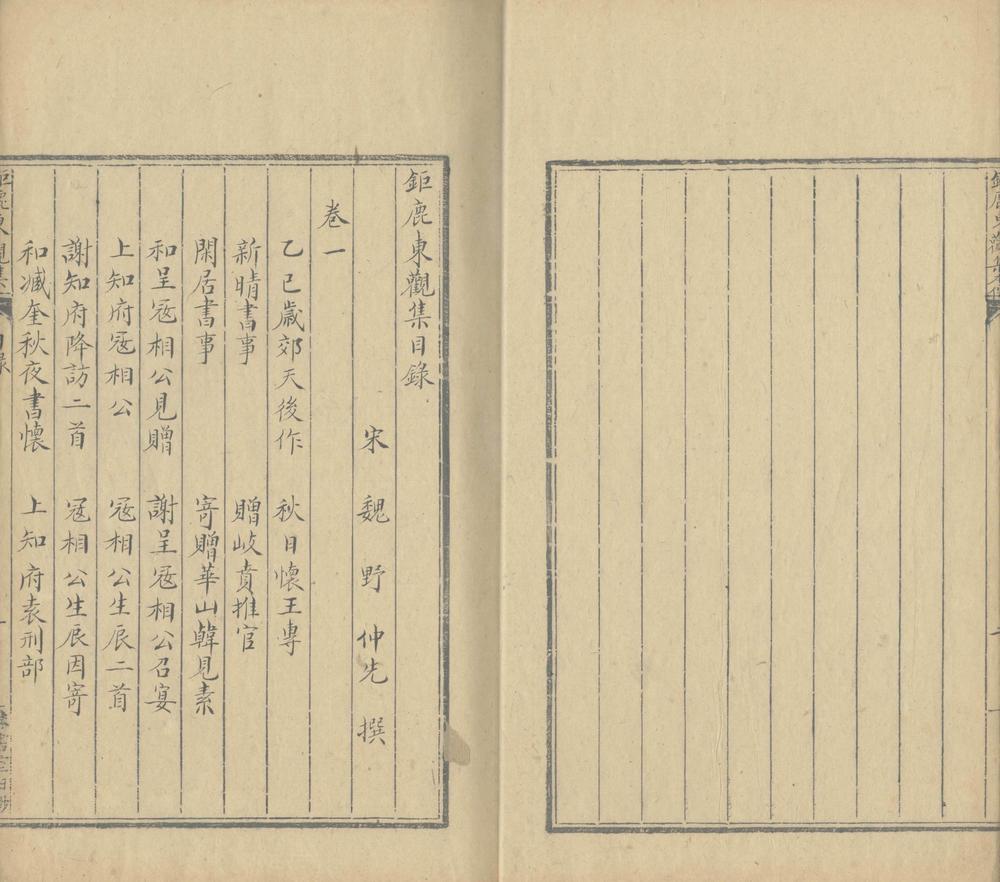 鉅鹿東觀集目錄
宋 魏野仲先 撰
卷一
乙巳歲郊天後作 秋日懷王專
新晴書事 贈岐賁推官
閑居書事 寄贈華山韓見素
和呈冦相公見贈 謝呈冦相公召宴
上知府冦相公 冦相公生辰二首
謝知府降訪二首 冦相公生辰因寄
和臧奎秋夜書懷 上知府袁刑部
鉅鹿東觀集
目錄
一